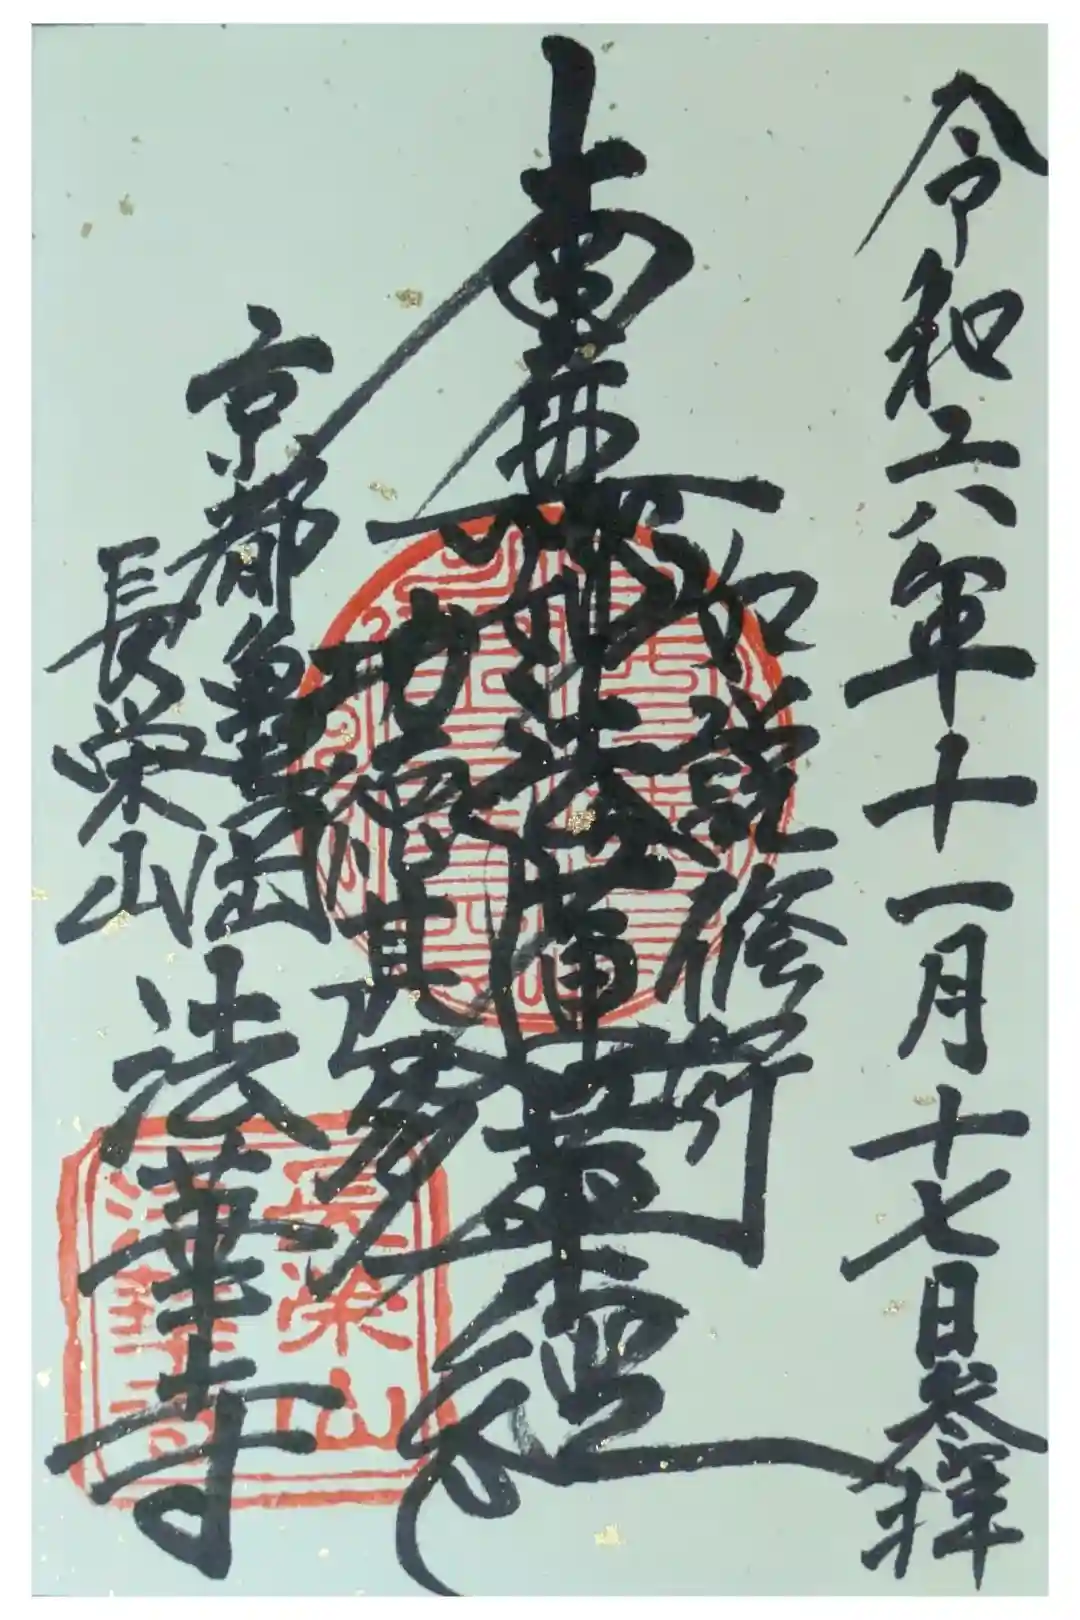 令和六年十一月十七日参拝
如説修行
南無妙法蓮華経
功徳甚多
京都亀岡
長栄山
法華寺
長栄山
法華寺